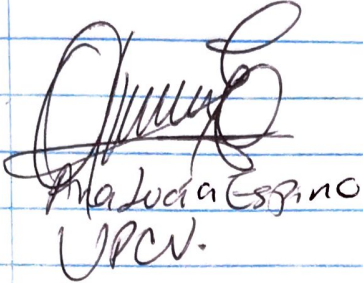 Ana Lucía Espino
UPCV.